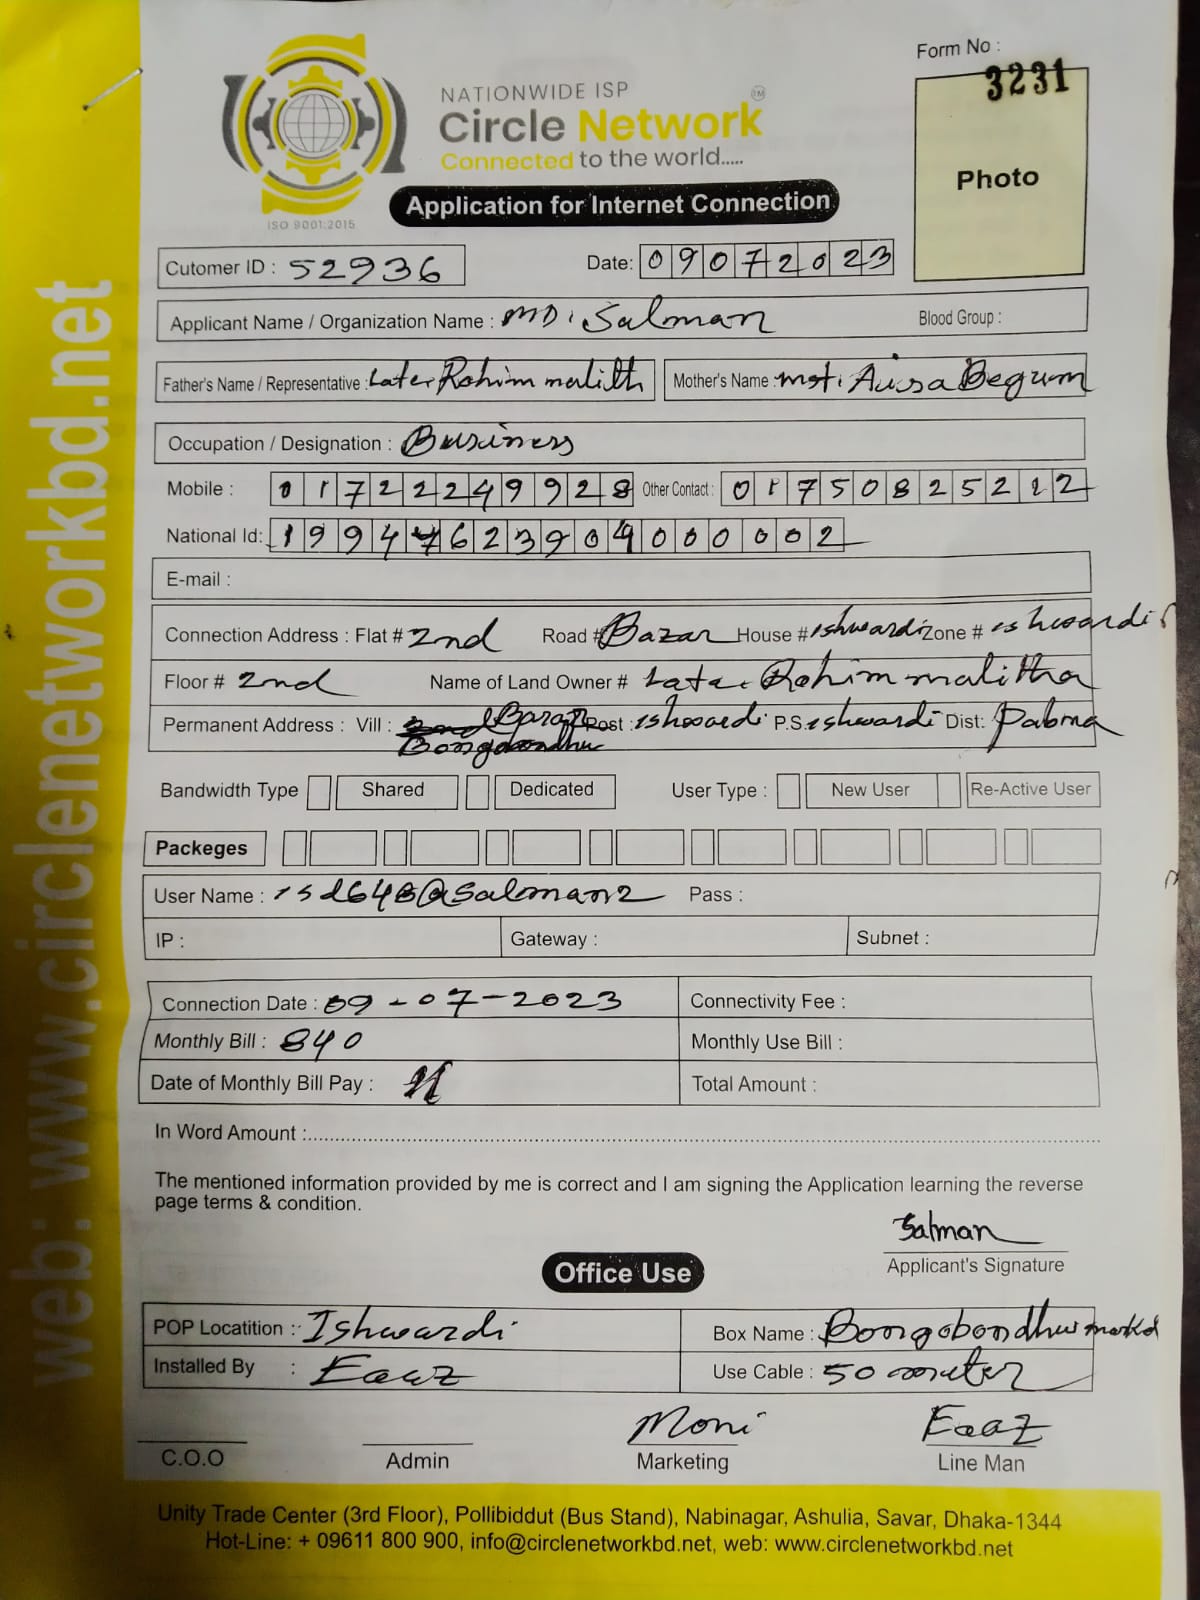 Form No :
3231
NATIONWIDE ISP
Circle Network TM
Connected to the world.....
Photo
Application for Internet Connection
ISO 9001:2015
Cutomer ID : 52936 Date: 09072023
Applicant Name / Organization Name : MD. Salman Blood Group :
Father's Name / Representative : Late. Rohim malith Mother's Name : mst. Aissa Begum
Occupation / Designation : Business
Mobile : 01722249928 Other Contact : 01750825212
National Id: 19947623904000002
E-mail :
Connection Address : Flat # 2nd Road # Bazar House # ishwardi Zone # ishwardi
Floor # 2nd Name of Land Owner # Late. Rohim malitha
Permanent Address : Vill : Bazar Post : ishwardi P.S. ishwardi Dist: Pabna
Bongobondhu
Bandwidth Type Shared Dedicated User Type : New User Re-Active User
Packeges
User Name : isd648@Salman2 Pass :
IP : Gateway : Subnet :
Connection Date : 09-07-2023 Connectivity Fee :
Monthly Bill : 840 Monthly Use Bill :
Date of Monthly Bill Pay : Total Amount :
In Word Amount :
The mentioned information provided by me is correct and I am signing the Application learning the reverse
page terms & condition.
Salman
Applicant's Signature
Office Use
POP Locatition : Ishwardi Box Name : Bongobondhu
Installed By : Eaaz Use Cable : 50 meter
Moni Eaaz
C.O.O Admin Marketing Line Man
Unity Trade Center (3rd Floor), Pollibiddut (Bus Stand), Nabinagar, Ashulia, Savar, Dhaka-1344
Hot-Line: + 09611 800 900, info@circlenetworkbd.net, web: www.circlenetworkbd.net
web: www.circlenetworkbd.net